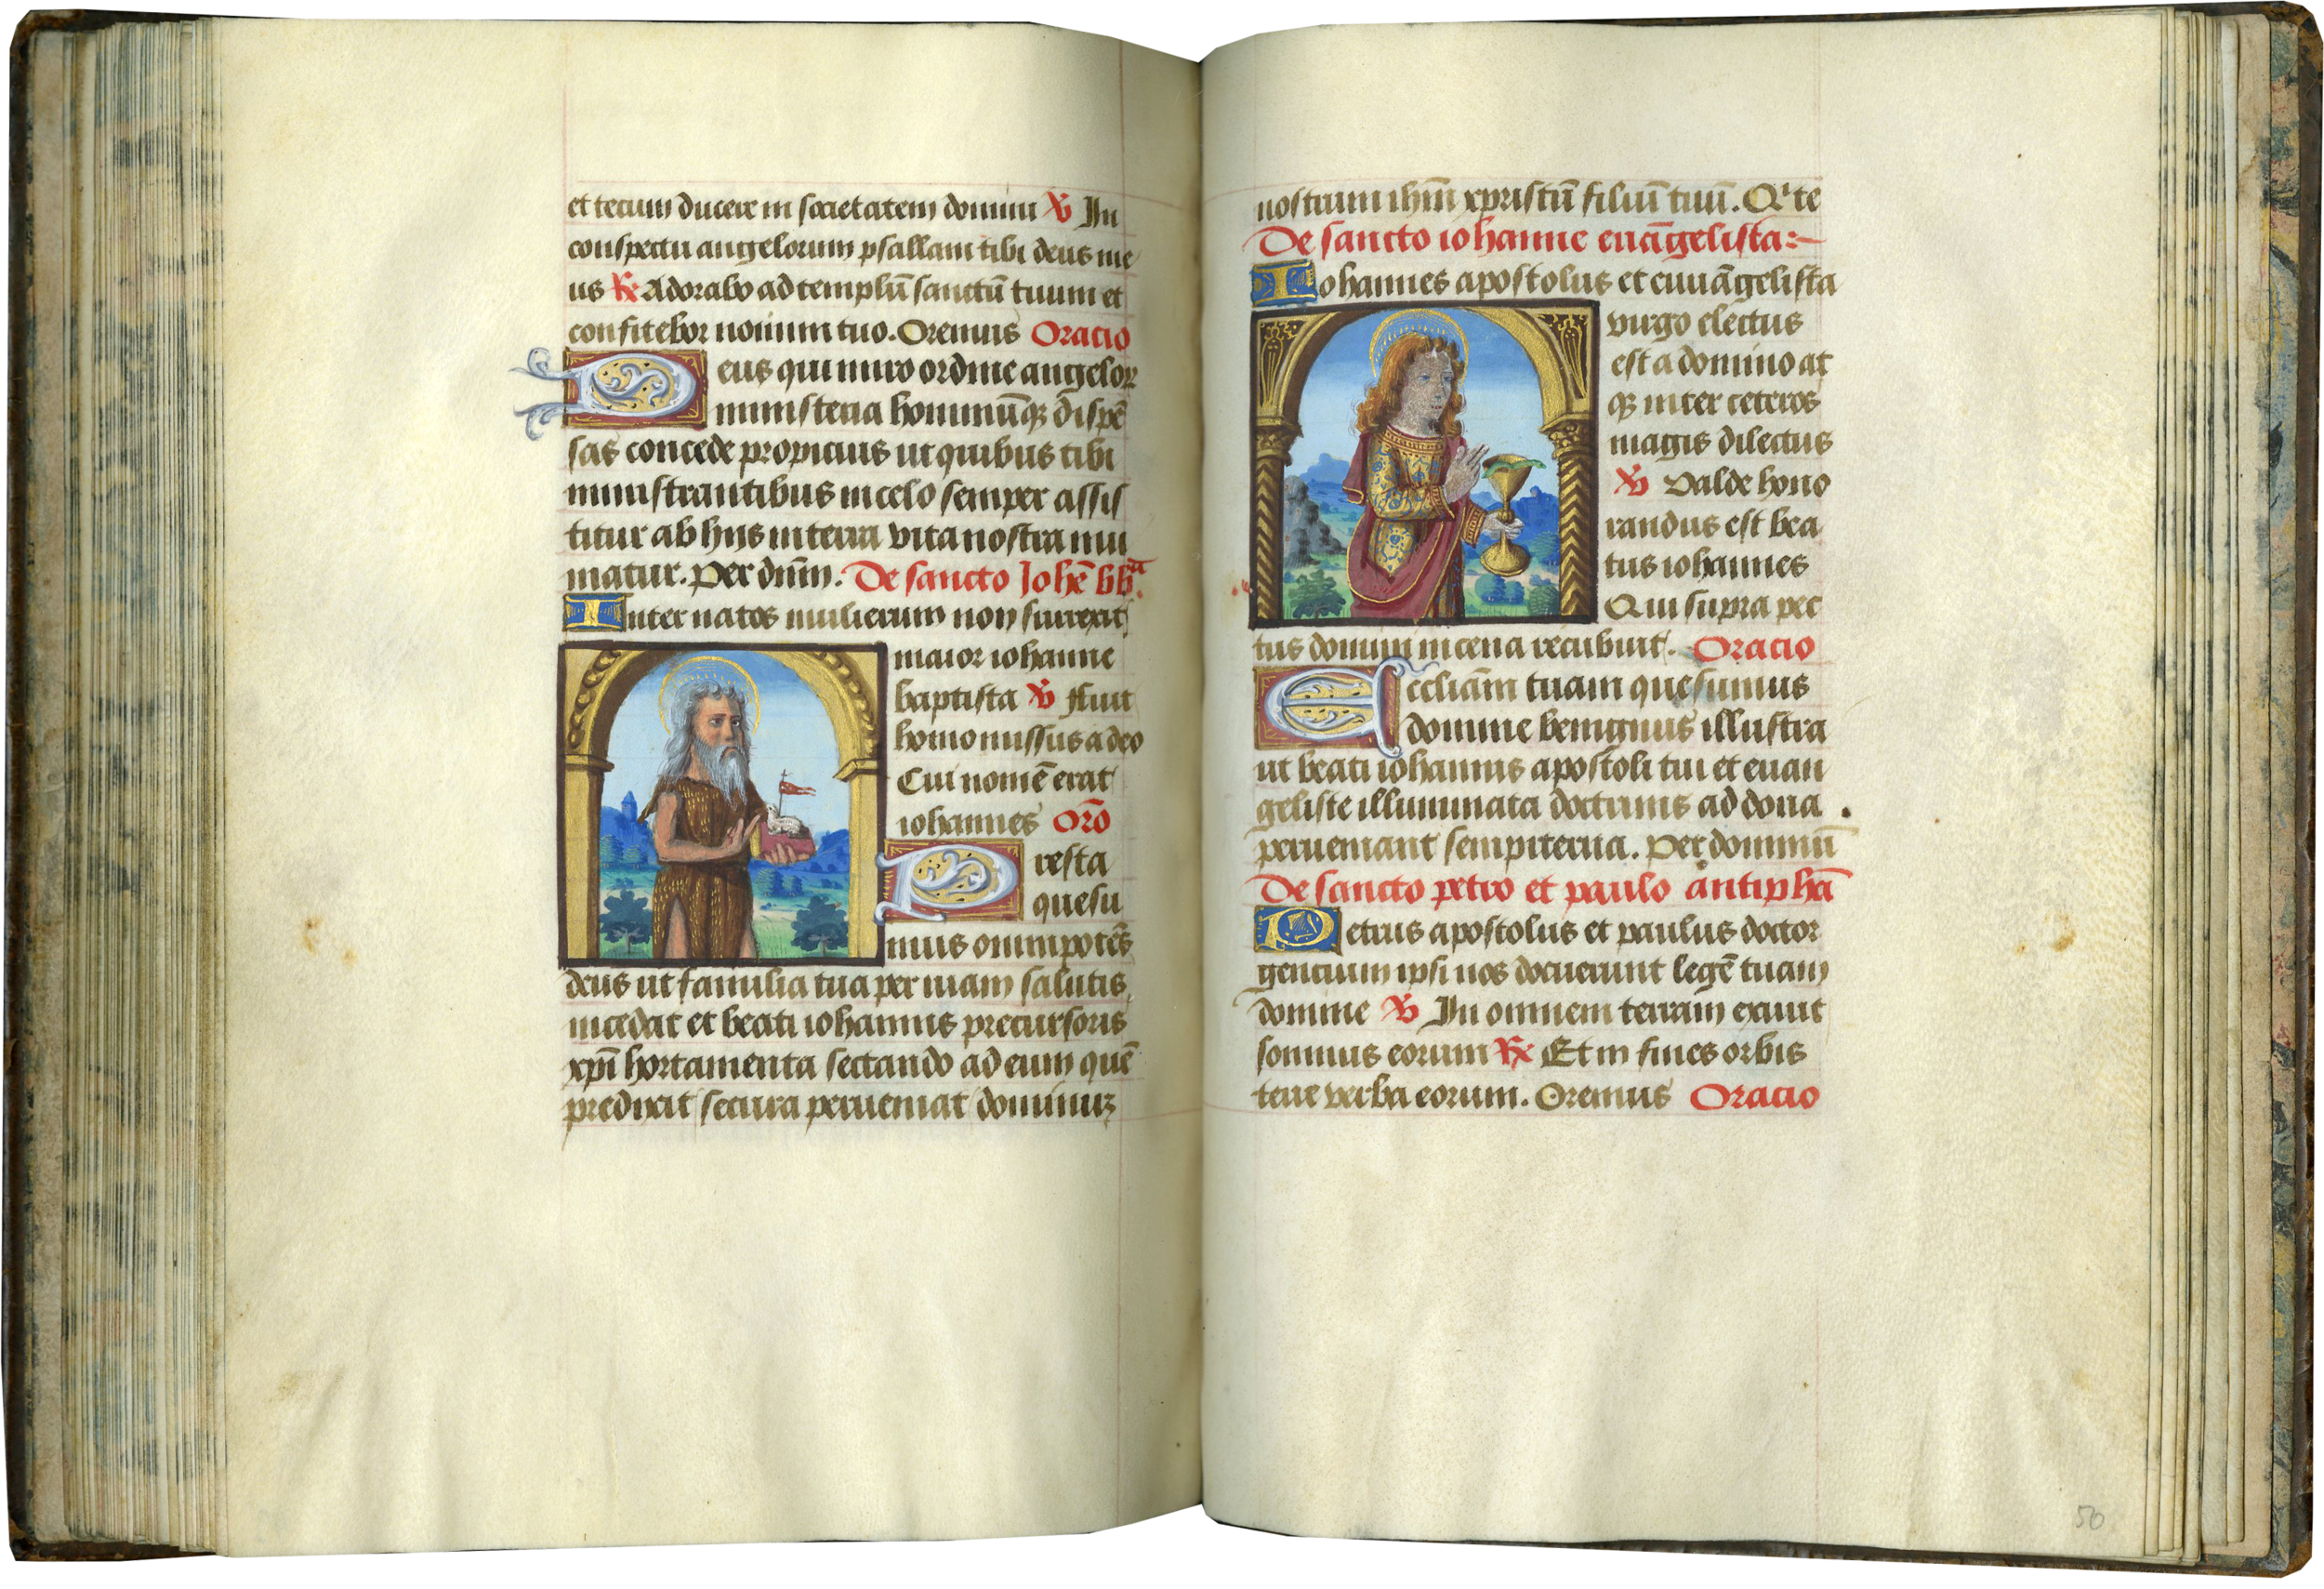 et tecum ducere in societatem domini ℣ In
conspectu angelorum psallam tibi deus me
us ℟ Adorabo ad templū sanctū tuum et
confitebor nomini tuo. Oremus Oracio
Deus qui miro ordine angeloꝝ
ministeria hominūqꝫ dispē
sas concede propicius ut quibus tibi
ministrantibus in celo semper assis
titur ab hijs in terra vita nostra mu
niatur. Per dn̄m. De sancto Johē bb̄ta.
Inter natos mulierum non surrexit
maior iohanne
baptista ℣ Fuit
homo missus a deo
Cui nomē erat
iohannes Oro̅
Presta
quesu
mus omnipotēs
deus ut familia tua per viam salutis
incedat et beati iohannis precursoris
xp̄i hortamenta sectando ad eum quē
predixit secura perueniat dominuꝫ
nostrum ih̄m xpristū filiū tuū. Qⁱ te
De sancto iohanne euāgelista:~
Iohannes apostolus et euuāgelista
virgo electus
est a domino at
qꝫ inter ceteros
magis dilectus
℣ Valde hono
randus est bea
tus iohannes
Qui supra pec
tus domini in cena recubuit. Oracio
Eccliām tuam quesumus
domine benignus illustra
ut beati iohannis apostoli tui et euan
geliste illuminata doctrinis ad dona
perueniant sempiterna. Per dominū
De sancto petro et paulo antiphā
Petrus apostolus et paulus doctor
gentium ipsi nos docuerunt legē tuam
domine ℣ In omnem terram exiuit
sonnus eorum ℟ Et in fines orbis
terre verba eorum. Oremus Oracio
50